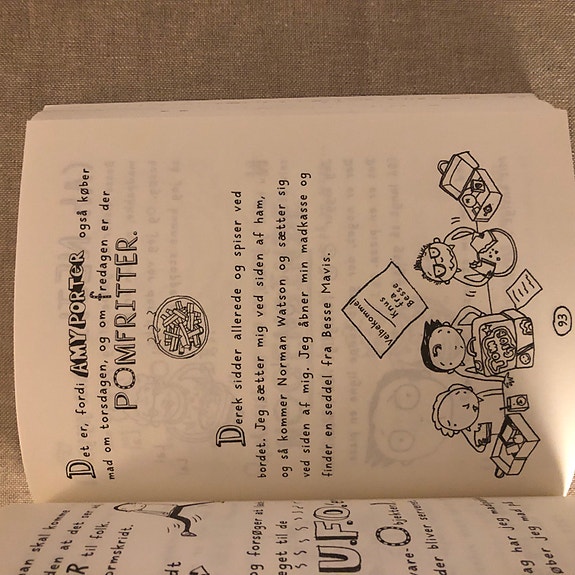 Det er, fordi AMY PORTER også køber
mad om torsdagen, og om fredagen er der
POMFRITTER.
Derek sidder allerede og spiser ved
bordet. Jeg sætter mig ved siden af ham,
og så kommer Norman Watson og sætter sig
ved siden af mig. Jeg åbner min madkasse og
finder en seddel fra Besse Mavis.
Velbekomme!
Knus
fra
Besse
93
man skal komme
den at det ser ud
R til folk.
ormskridt.
og forsøger at
eget til de
U.F.O.
vare-O
bjekter
der bliver server
ag har jeg
øber jeg mad på